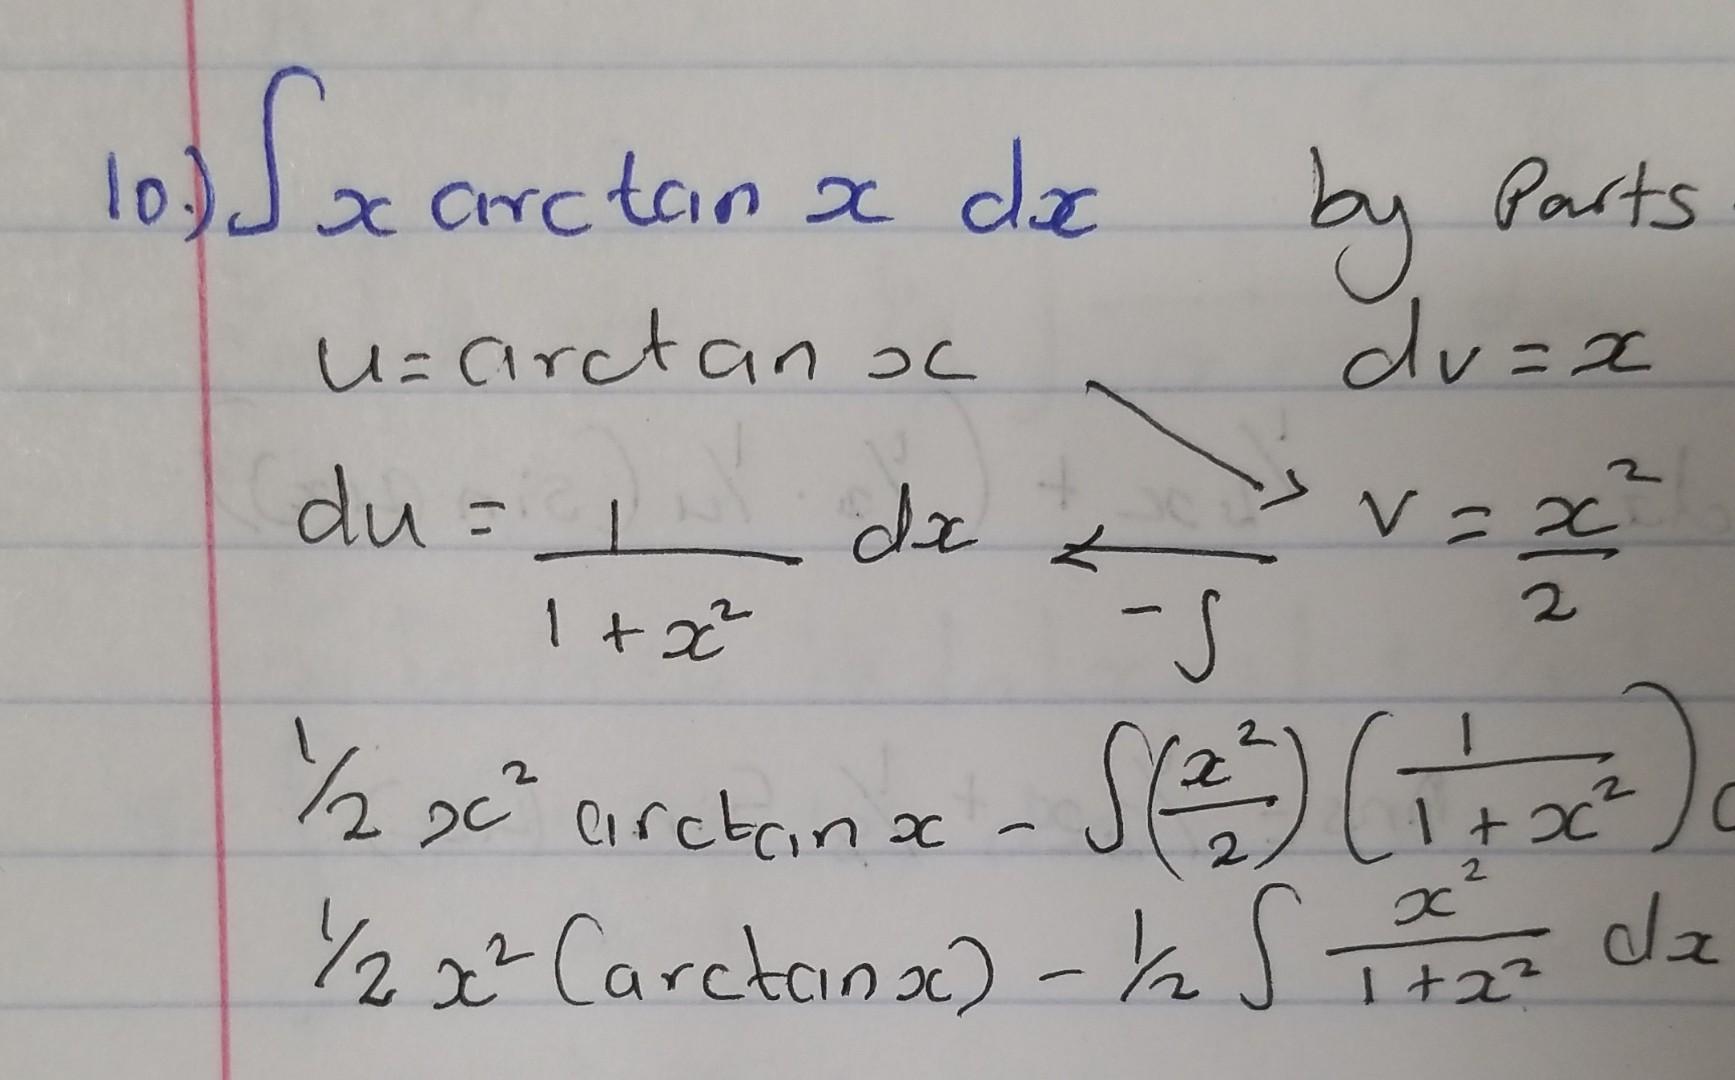 10.) ∫ x arctan x dx by Parts.
u = arctan x dv = x
du = 1/(1 + x²) dx v = x²/2
-∫
½ x² arctan x - ∫(x²/2)(1/(1 + x²))
½ x² (arctan x) - ½ ∫ x²/(1 + x²) dx